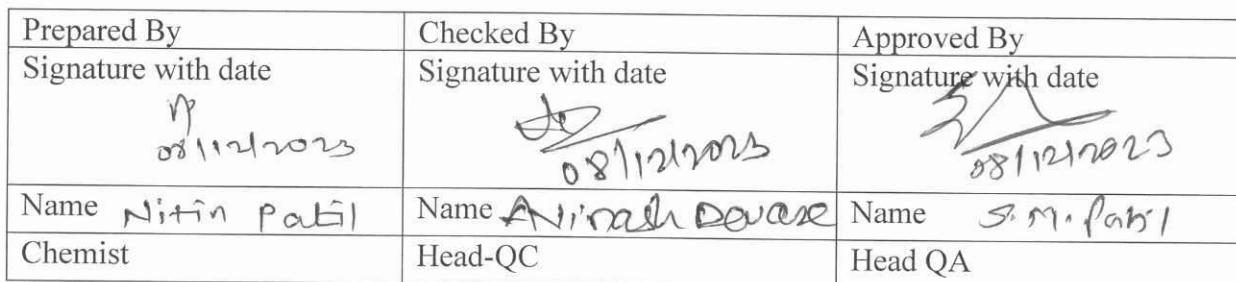 Prepared By Checked By Approved By
Signature with date Signature with date Signature with date
08/12/2023 08/12/2023 08/12/2023
Name Nitin Patil Name Avinash Devare Name S. M. Patil
Chemist Head-QC Head QA